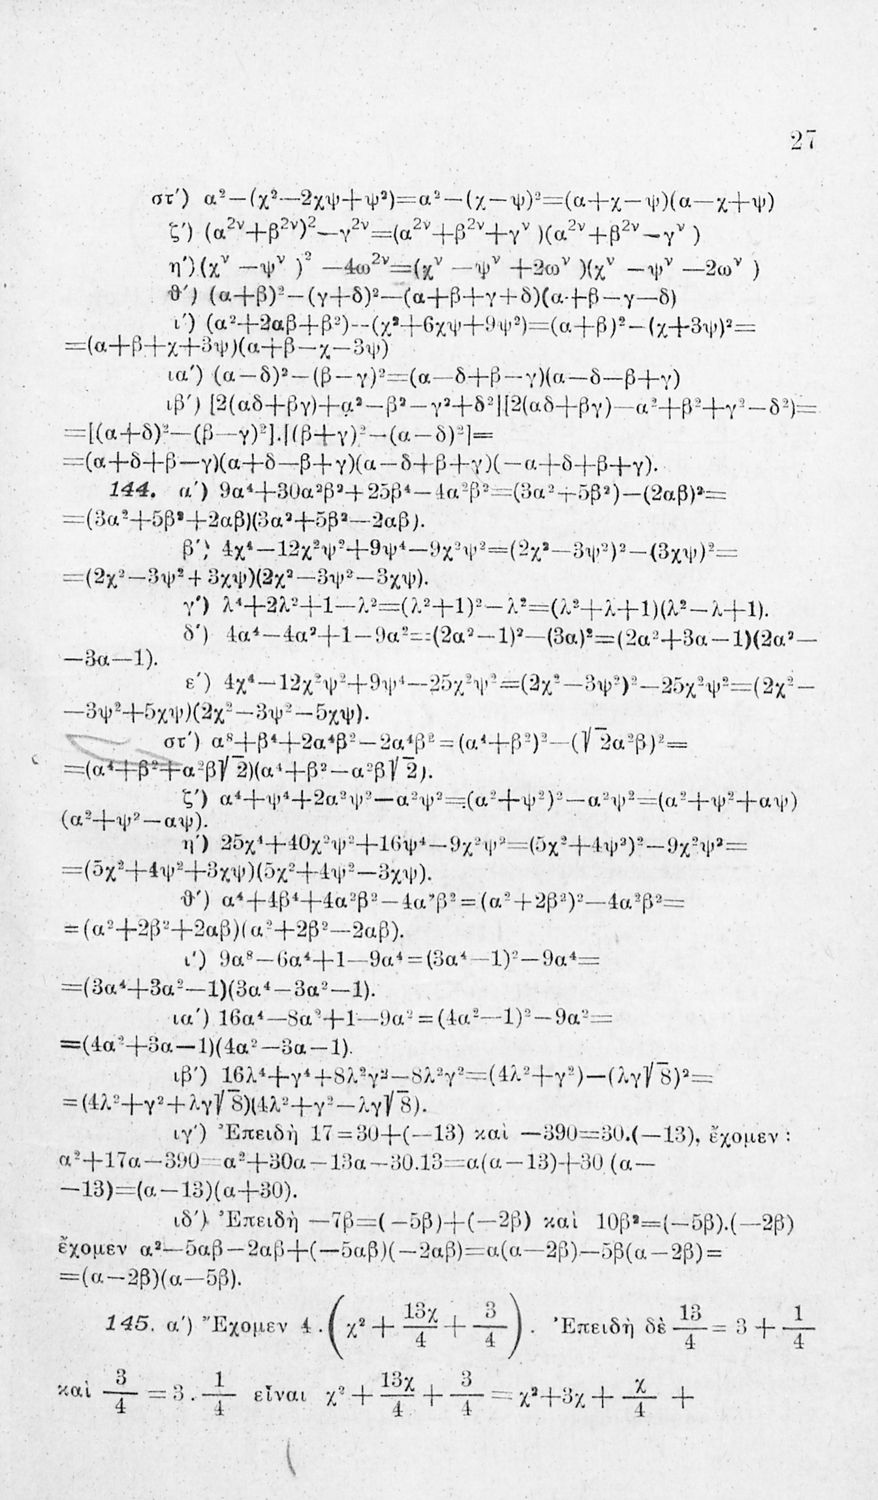 27
στ′) α²—(χ²—2χψ+ψ²)=α²—(χ—ψ)²=(α+χ—ψ)(α—χ+ψ)
ζ′) (α²ᵛ+β²ᵛ)²—γ²ᵛ=(α²ᵛ+β²ᵛ+γᵛ )(α²ᵛ+β²ᵛ—γᵛ )
η′)(χᵛ —ψᵛ )² —4ω²ᵛ=(χᵛ —ψᵛ +2ωᵛ )(χᵛ —ψᵛ —2ωᵛ )
θ′) (α+β)²—(γ+δ)²—(α+β+γ+δ)(α+β—γ—δ)
ι′) (α²+2αβ+β²)--(χ²+6χψ+9ψ²)=(α+β)²—(χ+3ψ)²=
=(α+β+χ+3ψ)(α+β—χ—3ψ)
ια′) (α—δ)²—(β—γ)²=(α—δ+β—γ)(α—δ—β+γ)
ιβ′) [2(αδ+βγ)+α²—β²—γ²+δ²][2(αδ+βγ)—α²+β²+γ²—δ²)=
=[(α+δ)²—(β—γ)²].[(β+γ)²—(α—δ)²]=
=(α+δ+β—γ)(α+δ—β+γ)(α—δ+β+γ)(—α+δ+β+γ).
144. α′) 9α⁴+30α²β²+25β⁴—4α²β²=(3α²+5β²)—(2αβ)²=
=(3α²+5β²+2αβ)(3α²+5β²—2αβ).
β′) 4χ⁴—12χ²ψ²+9ψ⁴—9χ²ψ²=(2χ²—3ψ²)²—(3χψ)²=
=(2χ²—3ψ²+3χψ)(2χ²—3ψ²—3χψ).
γ′) λ⁴+2λ²+1—λ²=(λ²+1)²—λ²=(λ²+λ+1)(λ²—λ+1).
δ′) 4α⁴—4α²+1—9α²=(2α²—1)²—(3α)²=(2α²+3α—1)(2α²—
—3α—1).
ε′) 4χ⁴—12χ²ψ²+9ψ⁴—25χ²ψ²=(2χ²—3ψ²)²—25χ²ψ²=(2χ²—
—3ψ²+5χψ)(2χ²—3ψ²—5χψ).
στ′) α⁸+β⁴+2α⁴β²—2α⁴β²=(α⁴+β²)²—(√2α²β)²=
=(α⁴+β²+α²β√2)(α⁴+β²—α²β√2).
ζ′) α⁴+ψ⁴+2α²ψ²—α²ψ²=(α²+ψ²)²—α²ψ²=(α²+ψ²+αψ)
(α²+ψ²—αψ).
η′) 25χ⁴+40χ²ψ²+16ψ⁴—9χ²ψ²=(5χ²+4ψ²)²—9χ²ψ²=
=(5χ²+4ψ²+3χψ)(5χ²+4ψ²—3χψ).
θ′) α⁴+4β⁴+4α²β²—4α²β²=(α²+2β²)²—4α²β²=
=(α²+2β²+2αβ)(α²+2β²—2αβ).
ι′) 9α⁸—6α⁴+1—9α⁴=(3α⁴—1)²—9α⁴=
=(3α⁴+3α²—1)(3α⁴—3α²—1).
ια′) 16α⁴—8α²+1—9α²=(4α²—1)²—9α²=
=(4α²+3α—1)(4α²—3α—1).
ιβ′) 16λ⁴+γ⁴+8λ²γ²—8λ²γ²=(4λ²+γ²)—(λγ√8)²=
=(4λ²+γ²+λγ√8)(4λ²+γ²—λγ√8).
ιγ′) Ἐπειδὴ 17=30+(—13) καὶ —390=30.(—13), ἔχομεν :
α²+17α—390=α²+30α—13α—30.13=α(α—13)+30 (α—
—13)=(α—13)(α+30).
ιδ′) Ἐπειδὴ —7β=(—5β)+(—2β) καὶ 10β²=(—5β).(—2β)
ἔχομεν α²—5αβ—2αβ+(—5αβ)(—2αβ)=α(α—2β)—5β(α—2β)=
=(α—2β)(α—5β).
145. α′) Ἔχομεν 4 . (χ² + 13χ/4 + 3/4) . Ἐπειδὴ δὲ 13/4 = 3 + 1/4
καὶ 3/4 = 3 . 1/4 εἶναι χ² + 13χ/4 + 3/4 = χ²+3χ + χ/4 +